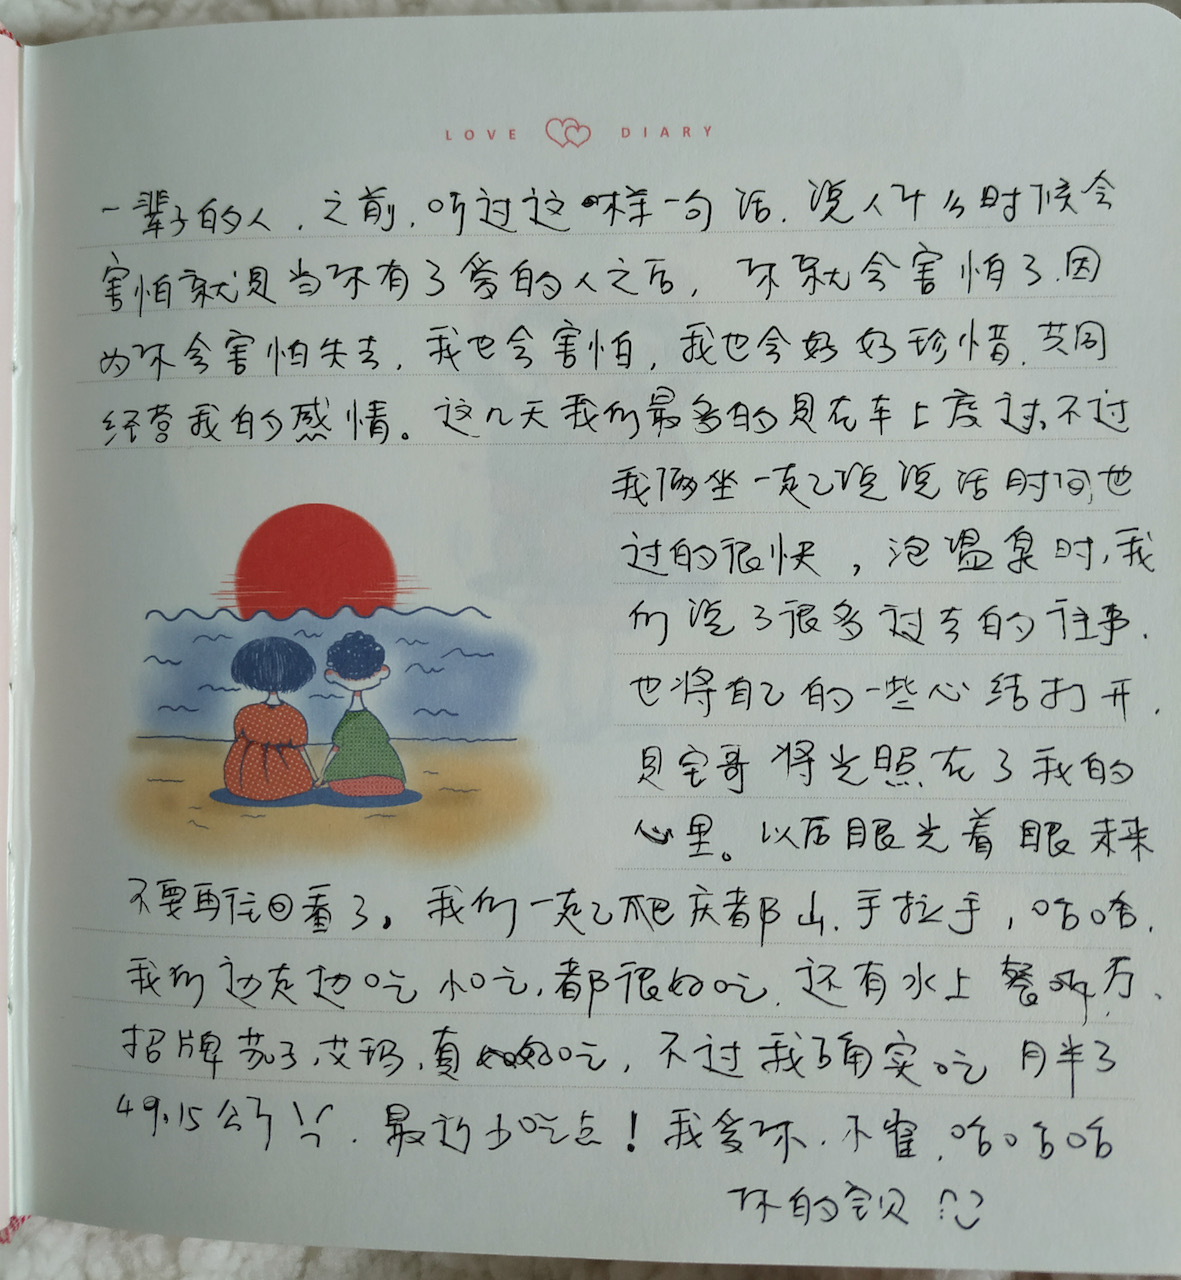 LOVE DIARY
一辈子的人,之前,听过这样一句话.说人什么时候会
害怕就是当你有了爱的人之后,你就会害怕了.因
为你会害怕失去,我也会害怕,我也会好好珍惜.共同
经营我的感情。这几天我们最多的是在车上度过,不过
我俩坐一起说说话时间也
过的很快,泡温泉时,我
们说了很多过去的往事.
也将自己的一些心结打开.
是宝哥将光照在了我的
心里。以后眼光着眼未来
不要再往回看了。我们一起爬庆都山.手拉手,哈哈.
我们边走边吃小吃,都很好吃.还有水上餐厅.
招牌茄子,艾玛,真好吃,不过我确实吃胖了
49.15公斤.最近少吃点!我爱你.小崔,哈哈哈
你的宝贝